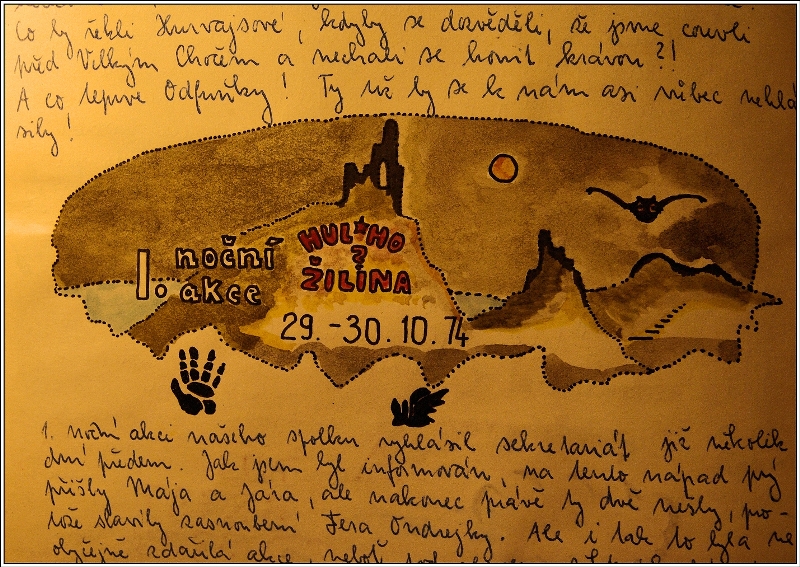 Co by řekli Hurvajsové, kdyby se dozvěděli, že jsme couvli
před Velkým Chočem a nechali se honit krávou?!
A co teprve Odfuníky! Ty už by se k nám asi vůbec nehlá
sily!
1. noční
akce
HUL★HO
?
ŽILINA
29.-30.10.74
1. noční akci našeho spolku vyhlásil sekretariát již několik
dní předem. Jak jsem byl informován, na tento nápad prý
přišly Mája a Jára, ale nakonec právě ty dvě nešly, pro-
tože slavily zasnoubení Fera Ondrejky. Ale i tak to byla ne
obyčejně zdařilá akce, neboť